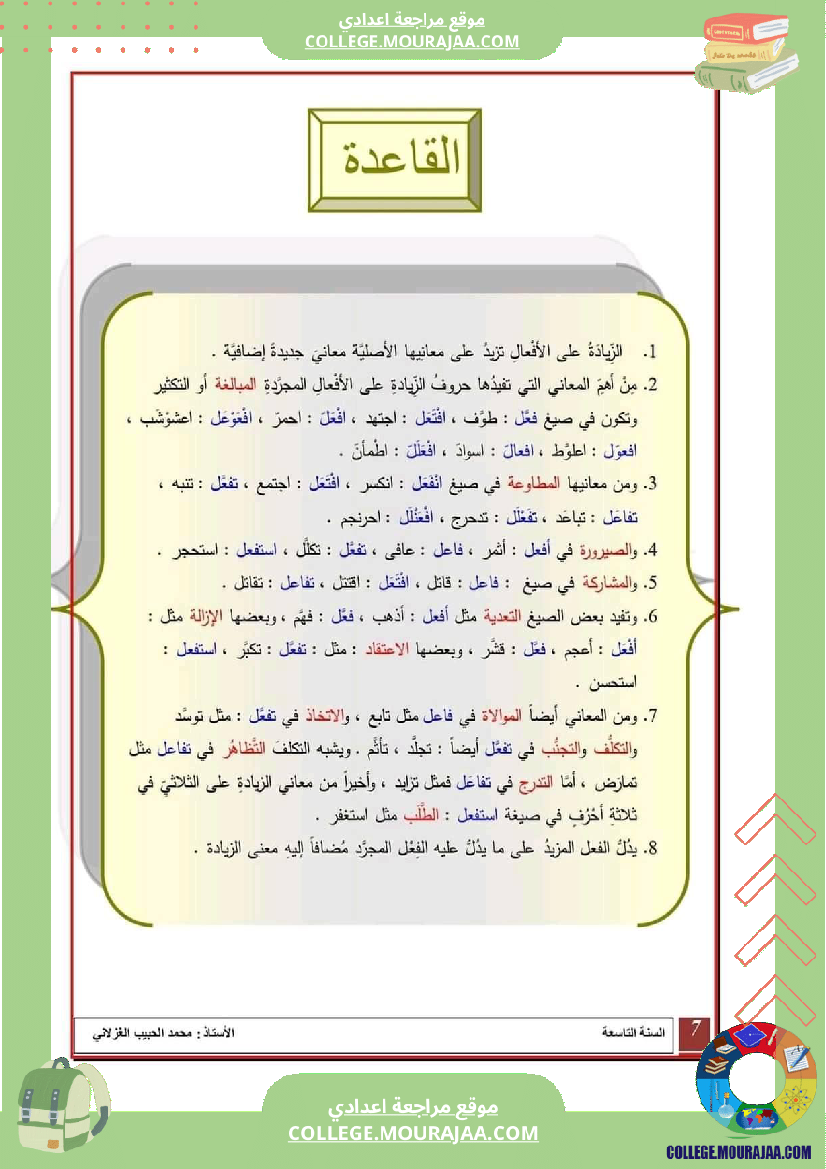 موقع مراجعة اعدادي
COLLEGE.MOURAJAA.COM
القاعدة
1. الزِّيادَةُ على الأفْعالِ تزيدُ على معانِيها الأصليَّة معانيَ جديدةً إضافيَّة .
2. مِنْ أهمِّ المعاني التي تفيدُها حروفُ الزِّيادةِ على الأفْعالِ المجرَّدةِ المبالغة أو التكثير
وتكون في صيغ فعَّل : طوَّف ، افْتَعَل : اجتهد ، افْعَلّ : احمرّ ، افْعَوْعَل : اعشوْشَب ،
افعوّل : اعلوّط ، افعالّ : اسوادّ ، افْعَلَلّ : اطْمأنّ .
3. ومن معانيها المطاوعة في صيغ انْفَعَل : انكسر ، افْتَعَل : اجتمع ، تفعَّل : تنبه ،
تفاعَل : تباعَد ، تفَعْلَل : تدحرج ، افْعَنْلَل : احرنجم .
4. والصيرورة في أفعل : أثمر ، فاعل : عافى ، تفعَّل : تكلَّل ، استفعل : استحجر .
5. والمشاركة في صيغ : فاعل : قاتل ، افْتَعَل : اقتتل ، تفاعل : تقاتل .
6. وتفيد بعض الصيغ التعدية مثل أفعل : أذهب ، فعَّل : فهَّم ، وبعضها الإزالة مثل :
أفْعَل : أعجم ، فعَّل : قشَّر ، وبعضها الاعتقاد : مثل : تفعَّل : تكبَّر ، استفعل :
استحسن .
7. ومن المعاني أيضاً الموالاة في فاعل مثل تابع ، والاتخاذ في تفعَّل : مثل توسَّد
والتكلُّف والتجنُّب في تفعَّل أيضاً : تجلَّد ، تأثَّم . ويشبه التكلفَ التَّظاهُر في تفاعل مثل
تمارَض ، أمَّا التدرج في تفاعَل فمثل تزايد ، وأخيراً من معاني الزيادةِ على الثلاثيِّ في
ثلاثةِ أحْرُفٍ في صيغة استفعل : الطَّلَب مثل استغفر .
8. يدُلُّ الفعل المزيدُ على ما يدُلُّ عليه الفِعْل المجرَّد مُضافاً إليهِ معنى الزيادة .
7
السنة التاسعة
الأستاذ : محمد الحبيب الغزلاني
موقع مراجعة اعدادي
COLLEGE.MOURAJAA.COM
COLLEGE.MOURAJAA.COM